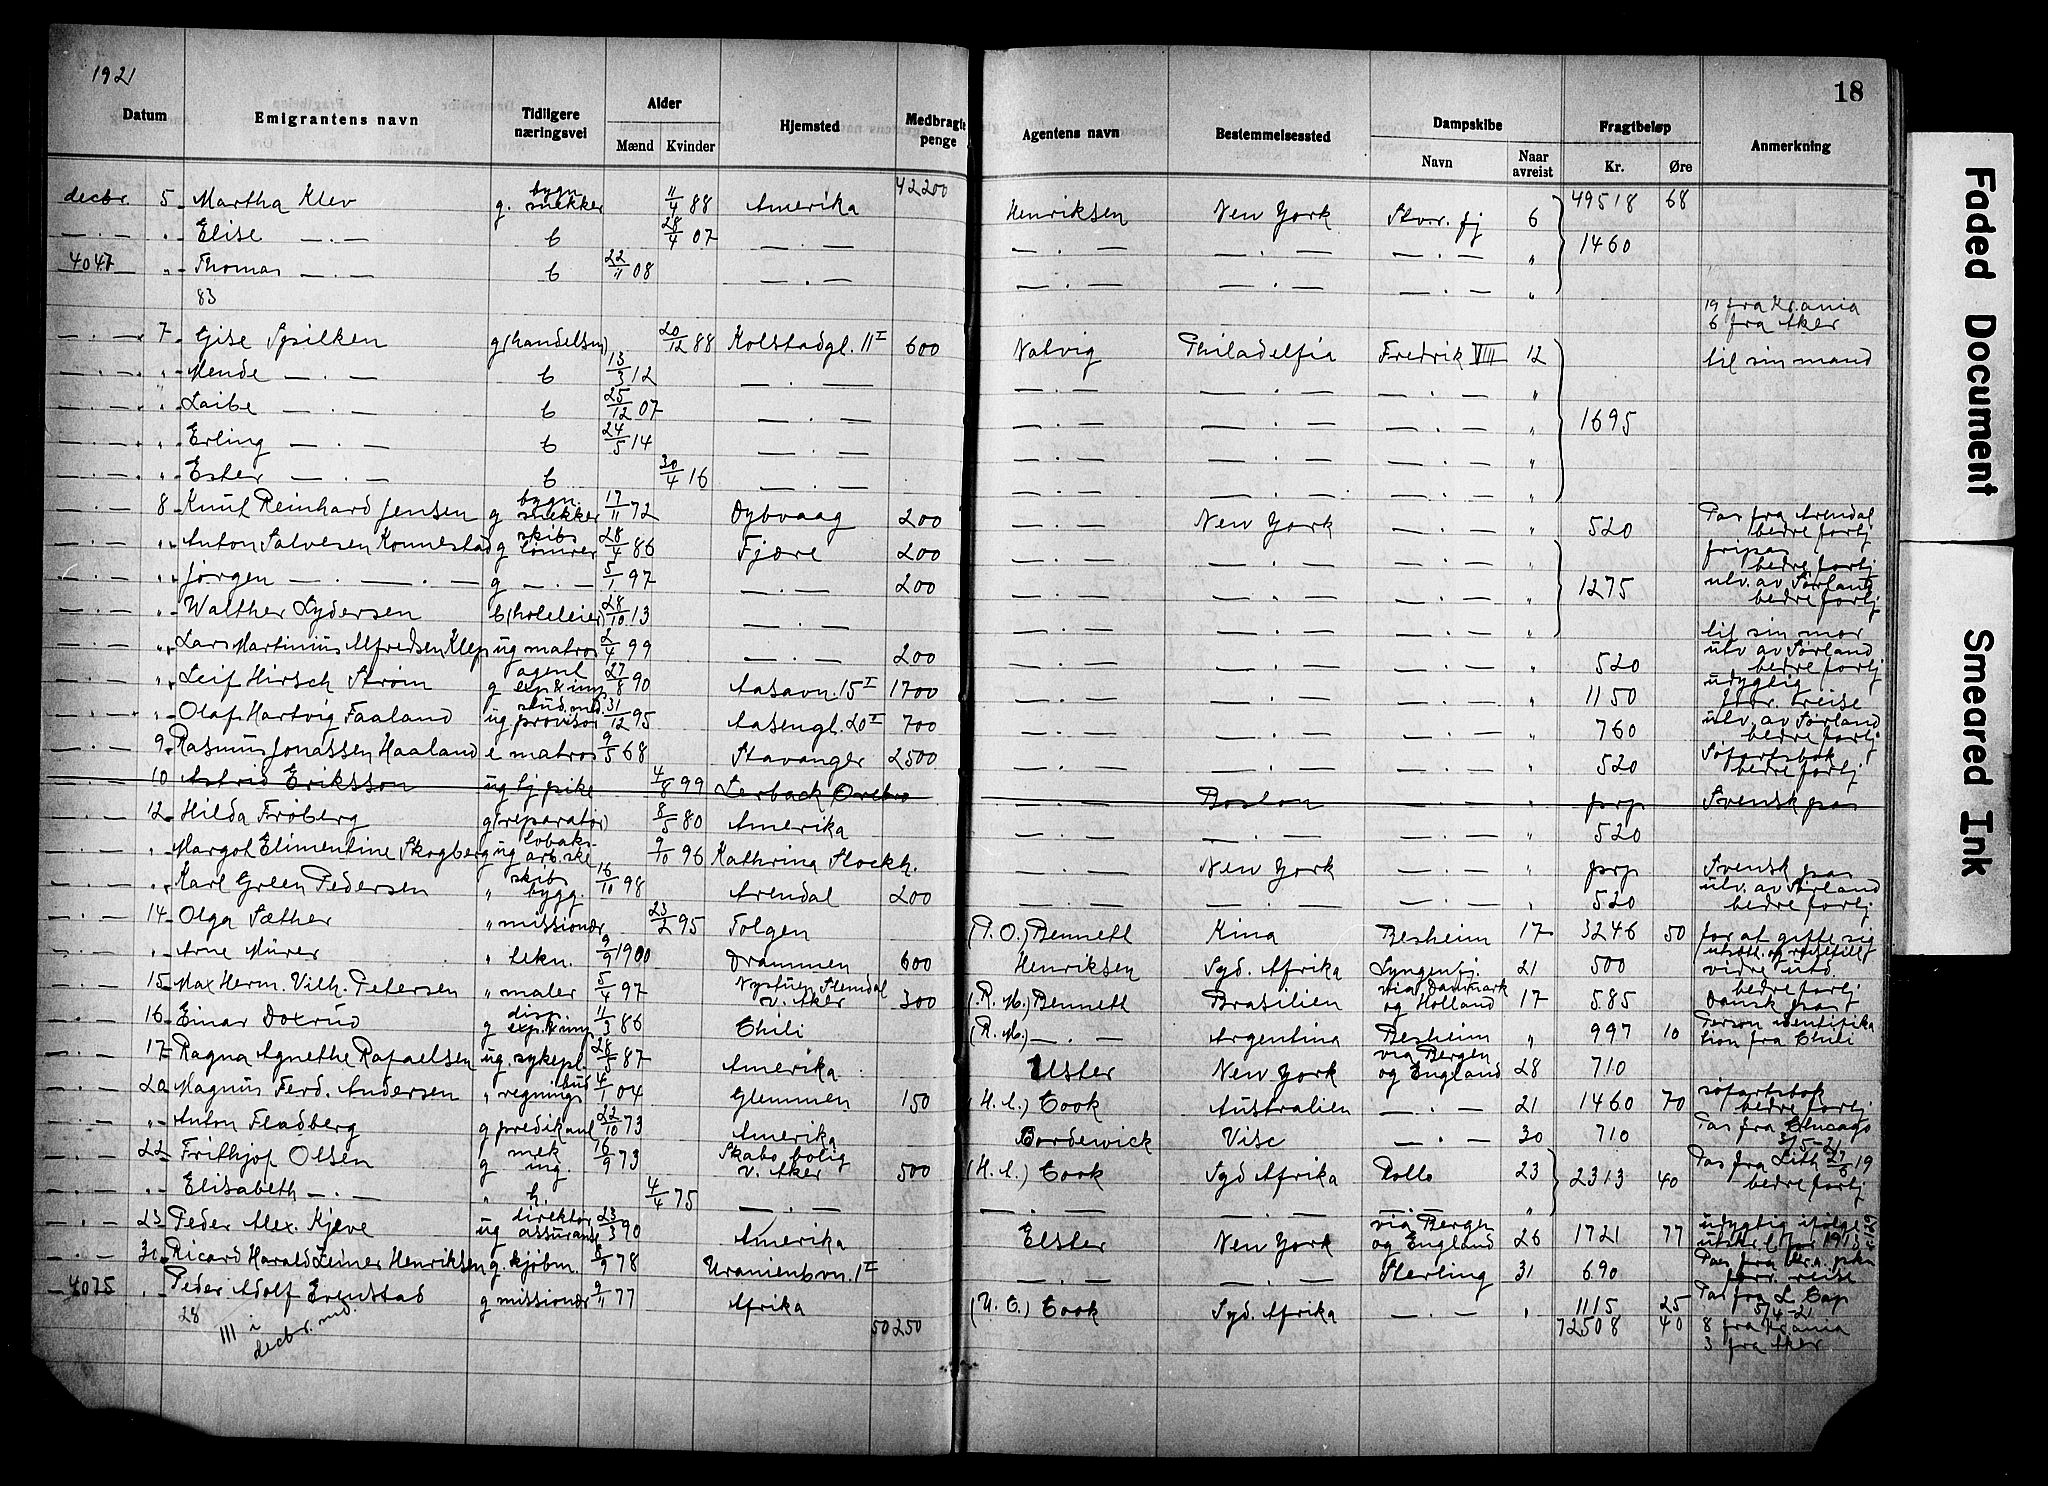 1921
18
Datum | Emigrantens navn | Tidligere næringsvei | Alder Mænd Kvinder | Hjemsted | Medbragte penge | Agentens navn | Bestemmelsessted | Dampskibe Navn Naar avreist | Fragtbeløp Kr. Øre | Anmerkning
42200 | 49518 68
decbr. 5 Martha Klev | g. bygn snekker | 11/4 88 | Amerika | Henriksen | New York | Stav.fj | 6
— . — " Elise — . — | b | 28/4 07 | — . — | — . — | — . — | — . — | " | 1460
4047 " Thomas — . — | b | 22/11 08 | — . — | — . — | — . — | — . — | "
83 | 19 fra Kr.ania 6 fra Aker
— . — 7 Gise Spilken | g (handelsm) | 20/12 88 | Kolstadgt. 11 I | 600 | Natvig | Philadelfia | Fredrik VIII | 12 | til sin mand
— . — " Mende — . — | b | 13/3 12 | — . — | — . — | — . — | — . — | "
— . — " Laibe — . — | b | 25/12 07 | — . — | — . — | — . — | — . — | " | 1695
— . — " Erling — . — | b | 24/5 14 | — . — | — . — | — . — | — . — | "
— . — " Ester — . — | b | 30/4 16 | — . — | — . — | — . — | — . — | "
— . — 8 Knut Reinhard Jensen | g bygn. snekker | 17/11 72 | Dybvaag | 200 | — . — | New York | — . — | " | 520 | Pas fra Arendal bedre fortj
— . — " Anton Salvesen Konnestad | g skibs tømrer | 28/4 86 | Fjære | 200 | — . — | — . — | — . — | " | fripas bedre fortj
— . — " Jørgen — . — . — | g — . — | 5/1 97 | — . — | 200 | — . — | — . — | — . — | " | 1275 | utv. av Sørland bedre fortj
— . — " Walther Lydersen | b (hoteleier) | 28/10 13 | — . — | — . — | — . — | — . — | " | til sin mor
— . — " Lars Martinius Alfredsen Klep | ug matros | 2/4 99 | — . — | 200 | — . — | — . — | — . — | " | 520 | utv av Sørland bedre fortj
— . — " Leif Hirsch Strøm | g agent exp & imp | 27/8 90 | Aasavn. 15 I | 1700 | — . — | — . — | — . — | " | 1150 | udygtig forr. reise
— . — " Olaf Hartvig Faaland | ug stud.med. provisor | 31/12 95 | Aasengt. 20 I | 700 | — . — | — . — | — . — | " | 760 | utv. av Sørland bedre fortj
— . — 9 Rasmus Jonassen Haaland | e matros | 9/5 68 | Stavanger | 2500 | — . — | — . — | — . — | " | 520 | Søfartsbok bedre fortj
— . — 10 Astrid Eriksson | ug tj pike | 4/8 99 | Lerback Orebro | — . — | Boston | — . — | " | prp | Svensk pas
— . — 12 Hilda Frøberg | g (reparatør) | 8/5 80 | Amerika | — . — | — . — | — . — | " | 520
— . — " Margot Elimentine Skogberg | ug tobaks arb.ske | 9/10 96 | Kathrina Stockh. | — . — | New York | — . — | " | prp | Svensk pas
— . — " Karl Green Pedersen | " skibs bygg. | 16/10 98 | Arendal | 200 | — . — | — . — | — . — | " | 520 | utv. av Sørland bedre fortj
— . — 14 Olga Sæther | " missionær | 23/2 95 | Tolgen | (T.O.) Bennett | Kina | Besheim | 17 | 3246 50 | for at gifte sig
— . — " Arne Mürer | " tekn. | 9/9 1900 | Drammen | 600 | Henriksen | Syd. Afrika | Lyngenfj. | 21 | 500 | vidre utd.
— . — 15 Max Herm. Vilh. Petersen | " maler | 5/4 97 | Nystuen Slemdal v. Aker | 300 | (R. M.) Bennett | Brasilien | via Danmark og Holland | 17 | 585 | bedre fortj Dansk pas
— . — 16 Einar Doxrud | g disp. exp. & imp | 11/3 86 | Chili | (R. M.) — . — | Argentina | Besheim | " | 997 10 | Person identifikation fra Chili
— . — 17 Ragna Agnethe Rafaelsen | ug. sykepl. | 28/5 87 | Amerika | Elster | New York | via Bergen og England | 28 | 710
— . — 20 Magnus Ferd. Andersen | " regnings bud | 4/1 04 | Glemmen | 150 | (H. C.) Cook | Australien | — . — | 21 | 1460 70 | søfartsbok bedre fortj
— . — " Anton Fladberg | g predikant | 22/10 73 | Amerika | Bordewick | Visc | — . — | 30 | 710 | Pas fra Chicago 3/5-21
— . — 22 Frithjof Olsen | g mek ing. | 16/9 73 | Skabo bolig v. Aker | 500 | (H. C.) Cook | Syd Afrika | Rollo | 23 | 2313 40 | Pas fra Lith 27/6 19 bedre fortj
— . — " Elisabeth — . — | " h. | 4/4 75 | — . — | — . — | — . — | — . — | "
— . — 23 Peder Alex. Kjeve | ug direktør assuranse | 23/3 90 | Amerika | Elster | New York | via Bergen og England | 26 | 1721 77 | udygtig ifølge utskr.
— . — 30 Ricard Harald Leiner Henriksen | g. kjøbm. | 8/9 78 | Uranienbvn. 1 I | — . — | — . — | Sterling | 31 | 690 | Pas fra Kr.a. forr. reise
4075 " Peder Adolf Evenstad | g missionær | 9/11 77 | Afrika | (U. C.) Cook | Syd. Afrika | — . — | " | 1115 25 | Pas fra L Cap 5/4-21
28 | III i decbr. md. | 50250 | 72508 40 | 8 fra Kr.ania 3 fra Aker
Faded Document
Smeared Ink